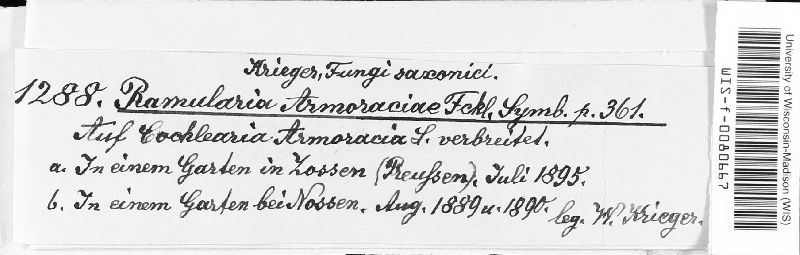 Krieger, Fungi saxonici.
1288. Ramularia Armoraciae Fckl, Symb. p. 361.
Auf Cochlearia Armoracia L. verbreitet.
a. In einem Garten in Zossen (Preußen), Juli 1895.
b. In einem Garten bei Nossen. Aug. 1889 u. 1890. leg. W. Krieger.
University of Wisconsin-Madison (WIS)
WIS-f-0080667